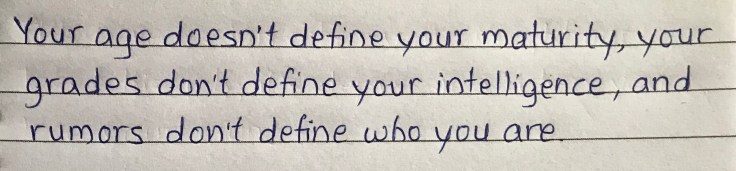 Your age doesn't define your maturity, your
grades don't define your intelligence, and
rumors don't define who you are.